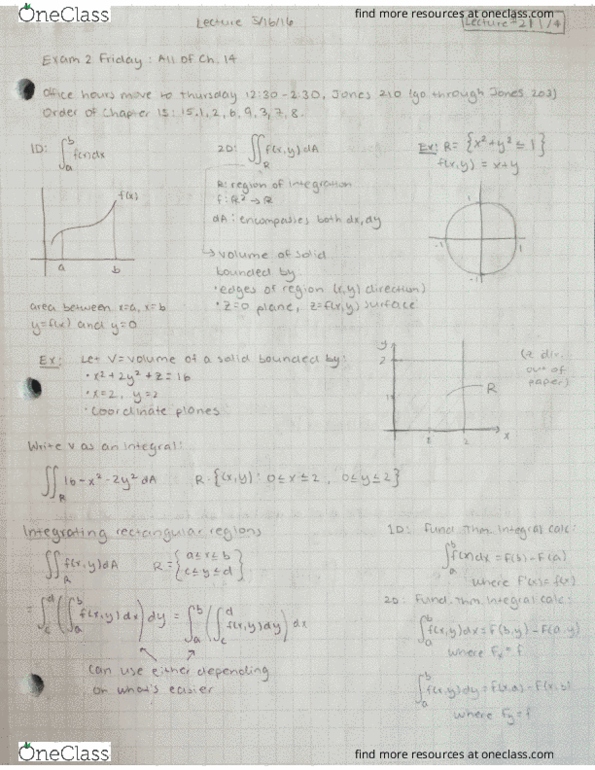 OneClass
find more resources at oneclass.com
Lecture 5/16/16
Lecture #21 1/4
Exam 2 Friday: All of Ch. 14
Office hours move to Thursday 12:30-2:30, Jones 210 (go through Jones 203)
Order of Chapter 15: 15.1, 2, 6, 9, 3, 7, 8.
1D: ∫_a^b f(x)dx
2D: ∬_R f(x,y)dA
Ex: R = {x²+y² ≤ 1}
f(x,y) = x+y
R: region of integration
f: R² → R
dA: encompasses both dx, dy
f(x)
a b
1
-1 1
-1
→ volume of solid
bounded by
• edges of region (x,y) direction)
• z=0 plane, z=f(x,y) surface
area between x=a, x=b
y=f(x) and y=0
Ex: Let V=volume of a solid bounded by:
• x²+2y²+z=16
• x=2, y=2
• coordinate planes
y
2
1
R
1 2 x
(z dir.
out of
paper)
Write V as an integral:
∬_R 16-x²-2y² dA R: {(x,y): 0≤x≤2, 0≤y≤2}
Integrating rectangular regions
∬_R f(x,y)dA R = {a≤x≤b
c≤y≤d}
= ∫_c^d (∫_a^b f(x,y)dx) dy = ∫_a^b (∫_c^d f(x,y)dy) dx
can use either depending
on what's easier
1D: Fund. Thm. Integral calc:
∫_a^b f(x)dx = F(b)-F(a)
where F'(x)=f(x)
2D: Fund. Thm. Integral calc:
∫_a^b f(x,y)dx = F(b,y)-F(a,y)
where Fx=f
∫_a^b f(x,y)dy = F(x,a)-F(x,b)
where Fy=f
OneClass
find more resources at oneclass.com